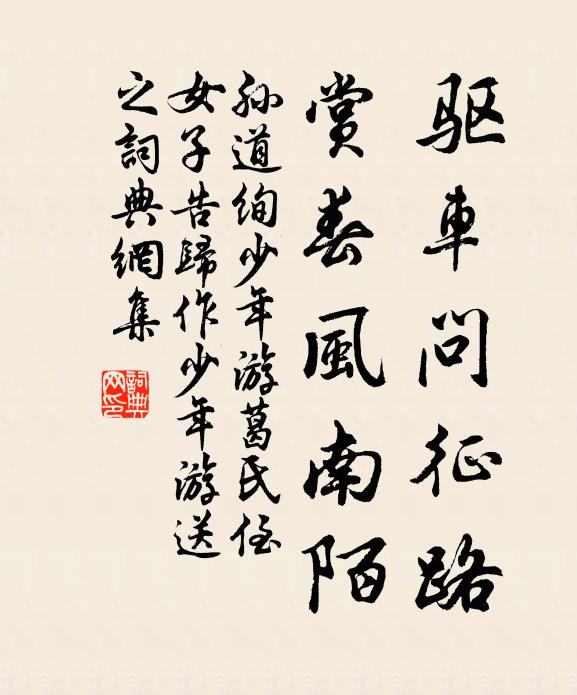 驱車问征路
賞春風南陌
孙道绚少年游葛氏侄
女子告歸作少年游送
之詞典網集
詞典网印